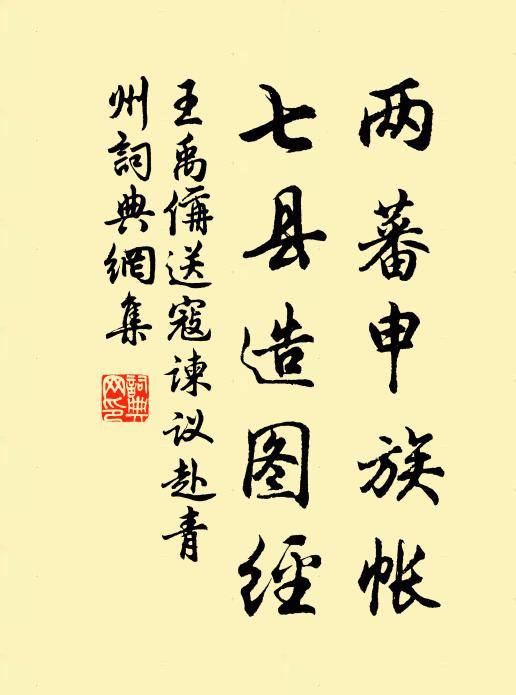 两蕃申族帐
七县造图經
王禹偁送寇諫议赴青
州詞典網集
詞典
网印